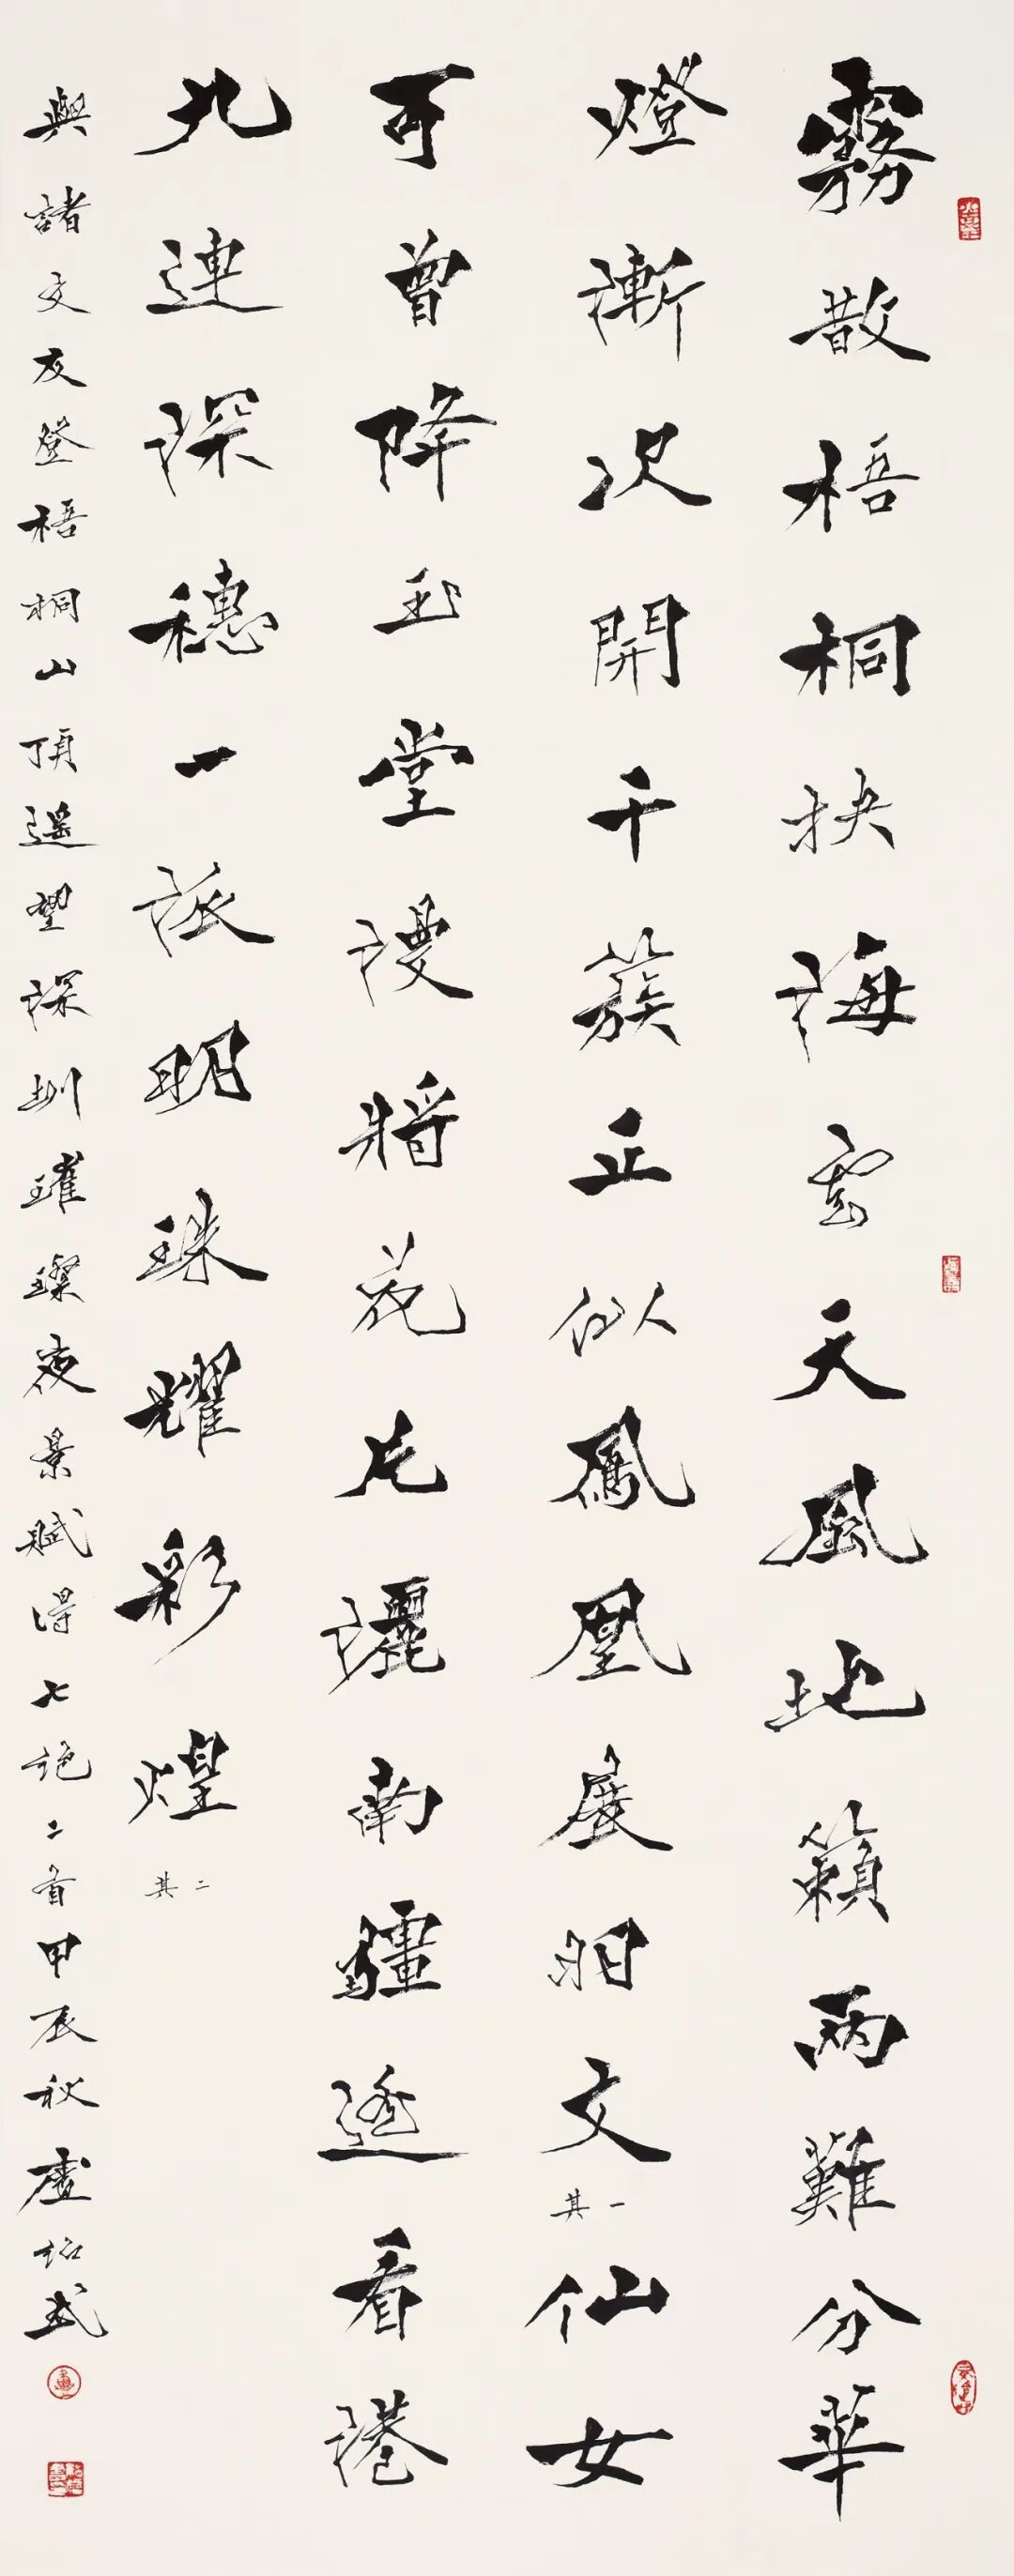 霧散梧桐抉海雲天風地籟兩難分華
燈漸次開千簇正似鳳凰展文 其一 仙女
可曾降玉堂漫將花片灑南疆遙看港
九連深穗一派明珠耀彩煌 其二
與諸文友登梧桐山頂遙望深圳璀璨夜景賦得七絕二首甲辰秋盧紹武